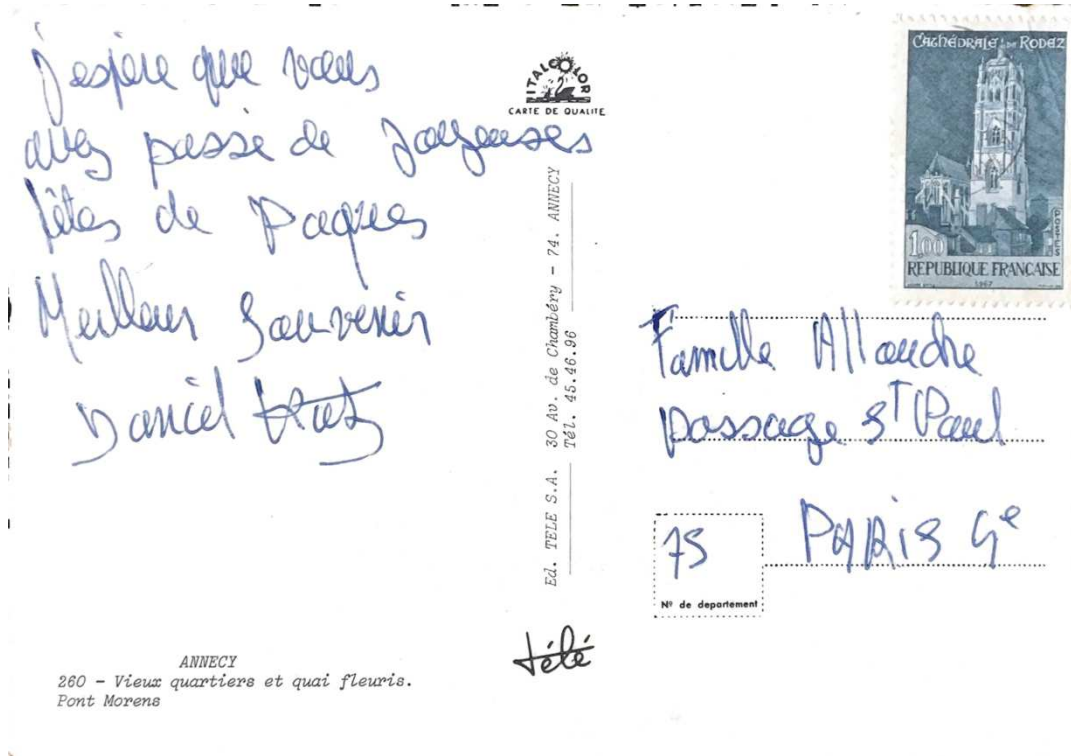 j'espère que vous
avez passé de Joyeuses
fêtes de Paques
Meilleur Souvenir
Daniel
ITALCOLOR
CARTE DE QUALITE
Ed. TELE S.A. 30 Av. de Chambéry - 74. ANNECY
Tél. 45.46.96
télé
CATHÉDRALE DE RODEZ
1,00
POSTES
REPUBLIQUE FRANCAISE
1967
Famille Allouche
passage St Paul
75 PARIS 4e
Nº de departement
ANNECY
260 - Vieux quartiers et quai fleuris.
Pont Morens